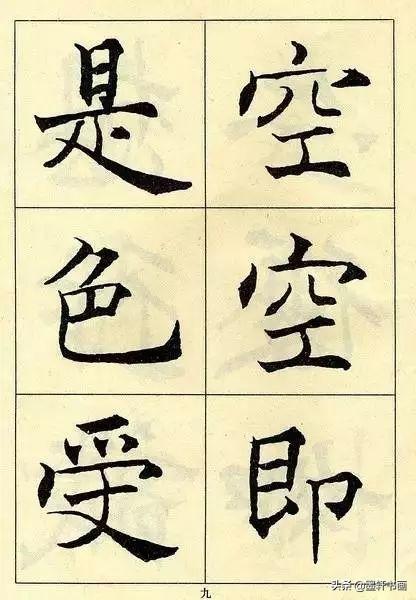 空空即
是色受
九
头条@墨轩书画